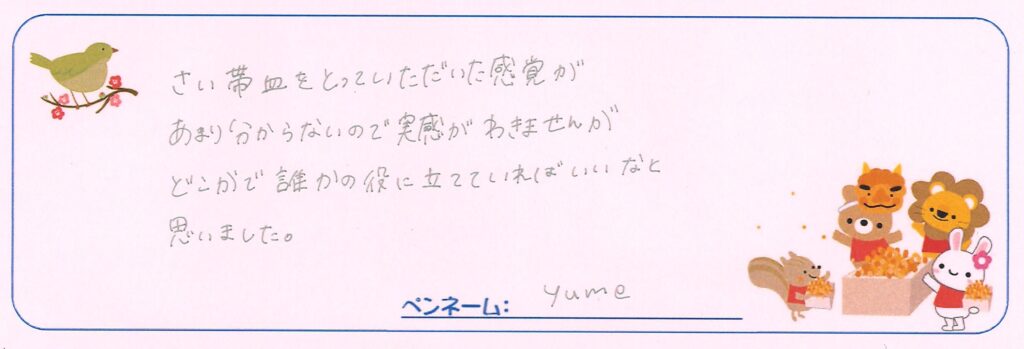 さい帯血をとっていただいた感覚が
あまり分からないので実感がわきませんが
どこかで誰かの役に立てていればいいなと
思いました。
ペンネーム: yume